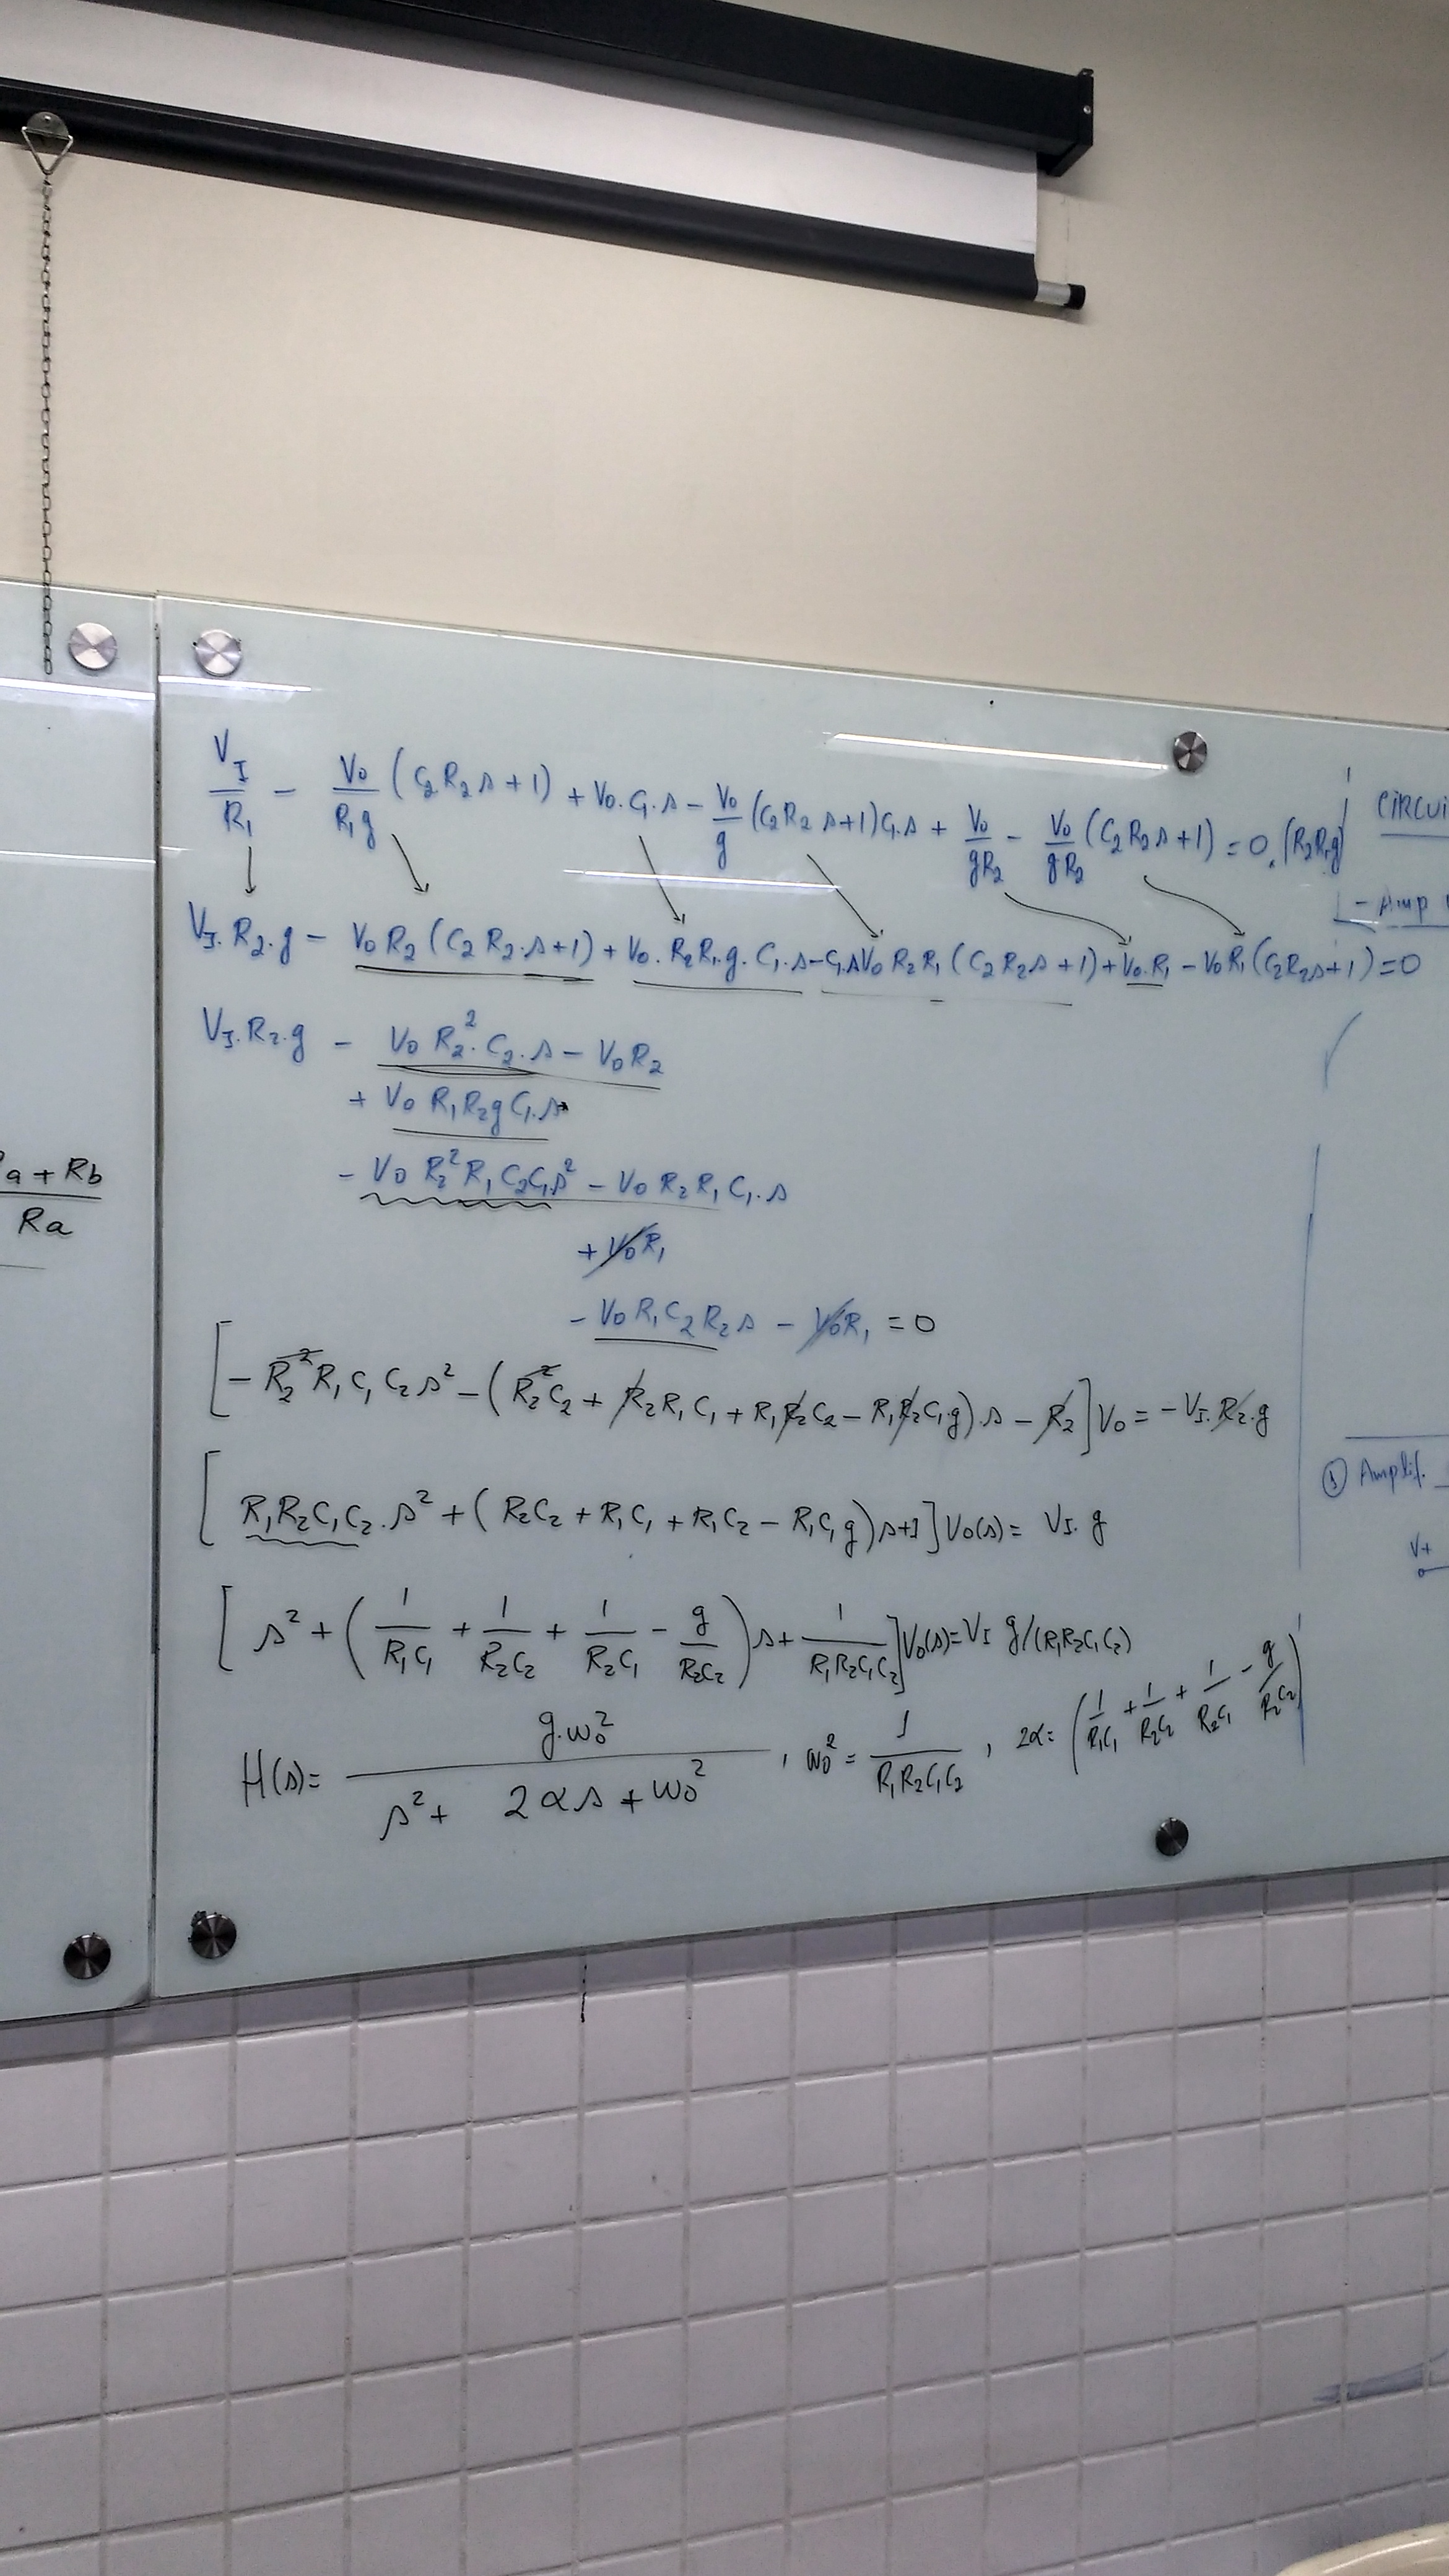 V_I/R_1 - V_0/(R_1 g) (C_2 R_2 s + 1) + V_0.C_1.s - V_0/g (C_2 R_2 s + 1) C_1.s + V_0/(g R_2) - V_0/(g R_2) (C_2 R_2 s + 1) = 0 . (R_2 R_1 g)
V_I.R_2.g - V_0 R_2 (C_2 R_2.s + 1) + V_0.R_2 R_1.g.C_1.s - C_1.s V_0 R_2 R_1 (C_2 R_2 s + 1) + V_0.R_1 - V_0 R_1 (C_2 R_2 s + 1) = 0
V_I.R_2.g - V_0 R_2^2.C_2.s - V_0 R_2
+ V_0 R_1 R_2 g C_1.s
- V_0 R_2^2 R_1 C_2 C_1 s^2 - V_0 R_2 R_1 C_1.s
+ V_0 R_1
- V_0 R_1 C_2 R_2 s - V_0 R_1 = 0
[- R_2^2 R_1 C_1 C_2 s^2 - (R_2^2 C_2 + R_2 R_1 C_1 + R_1 R_2 C_2 - R_1 R_2 C_1 g).s - R_2] V_0 = - V_I.R_2.g
[R_1 R_2 C_1 C_2.s^2 + (R_2 C_2 + R_1 C_1 + R_1 C_2 - R_1 C_1 g) s + 1] V_0(s) = V_I.g
[s^2 + (1/(R_1 C_1) + 1/(R_2 C_2) + 1/(R_2 C_1) - g/(R_2 C_2)) s + 1/(R_1 R_2 C_1 C_2)] V_0(s) = V_I g/(R_1 R_2 C_1 C_2)
H(s) = g.ω_0^2/(s^2 + 2αs + ω_0^2) , ω_0^2 = 1/(R_1 R_2 C_1 C_2) , 2α = (1/(R_1 C_1) + 1/(R_2 C_2) + 1/(R_2 C_1) - g/(R_2 C_2))
a + Rb
Ra
CIRCUI
- Amp
① Amplif.
V+